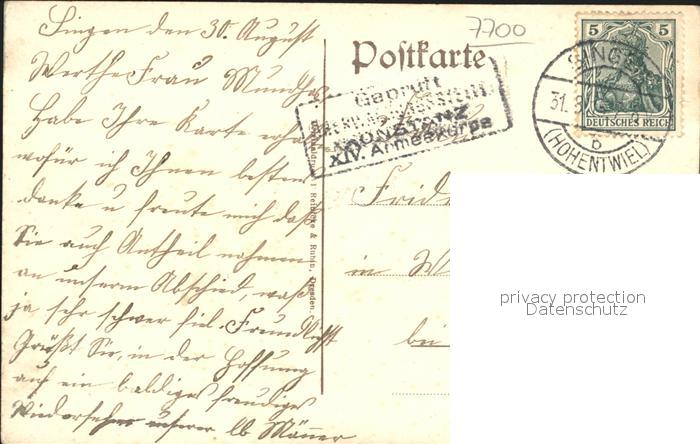 Singen den 30. August
Werthe Frau
Habe Ihre Karte
wofür ich Ihnen bestens
danke u freute mich daß
Sie auch Antheil nahmen
an unserm Abschied, was
ja sehr schwer fiel. Freundlichst
Grüßt Sie, in der Hoffnung
auf ein baldiges freudiges
Wiedersehen unserer lb Männer
7700
Postkarte
Geprüft
KONSTANZ
XIV. Armeekorps
5 5
DEUTSCHES REICH
SINGEN
31. 8
b
(HOHENTWIEL)
Reinicke & Rubin, Dresden.
in
bei
privacy protection
Datenschutz